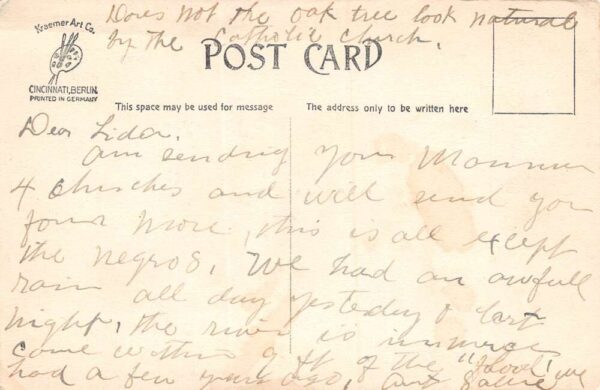 Does not the oak tree look natural
by the Catholic Church.
Kraemer Art Co.
CINCINNATI, BERLIN.
PRINTED IN GERMANY
POST CARD
This space may be used for message
The address only to be written here
Dear
am sending you
4 churches and will send you
four more, this is all except
the negros, We had an awfull
rain all day yesteday & last
night, the river is
come within 9 ft of the "flood" we
had a few years ago,